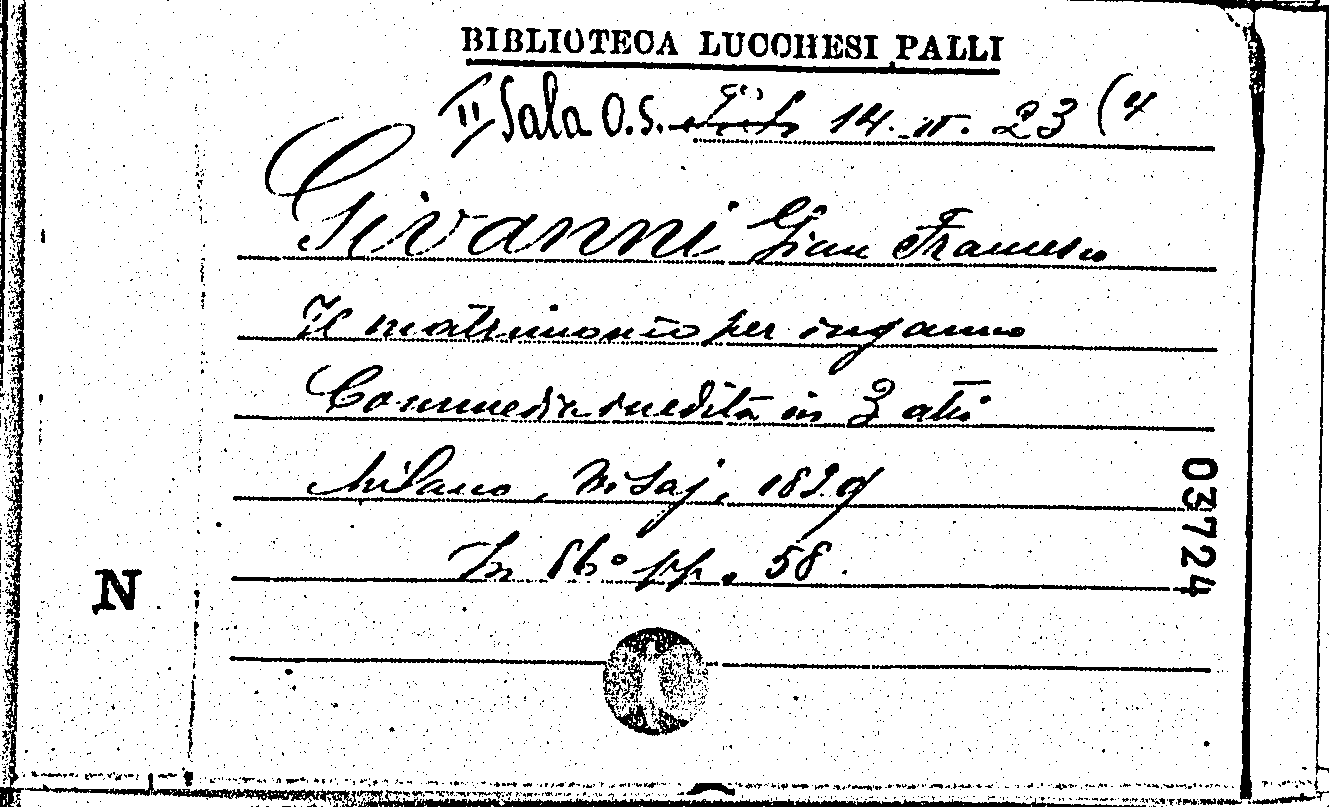 BIBLIOTECA LUCCHESI PALLI
II Sala O.S. 14. II. 23 (4
Givanni Gian Francesco
Il matrimonio per inganno
Commedia inedita in 3 atti
Milano, Visaj, 1829
In 16° pp. 58.
03724
N